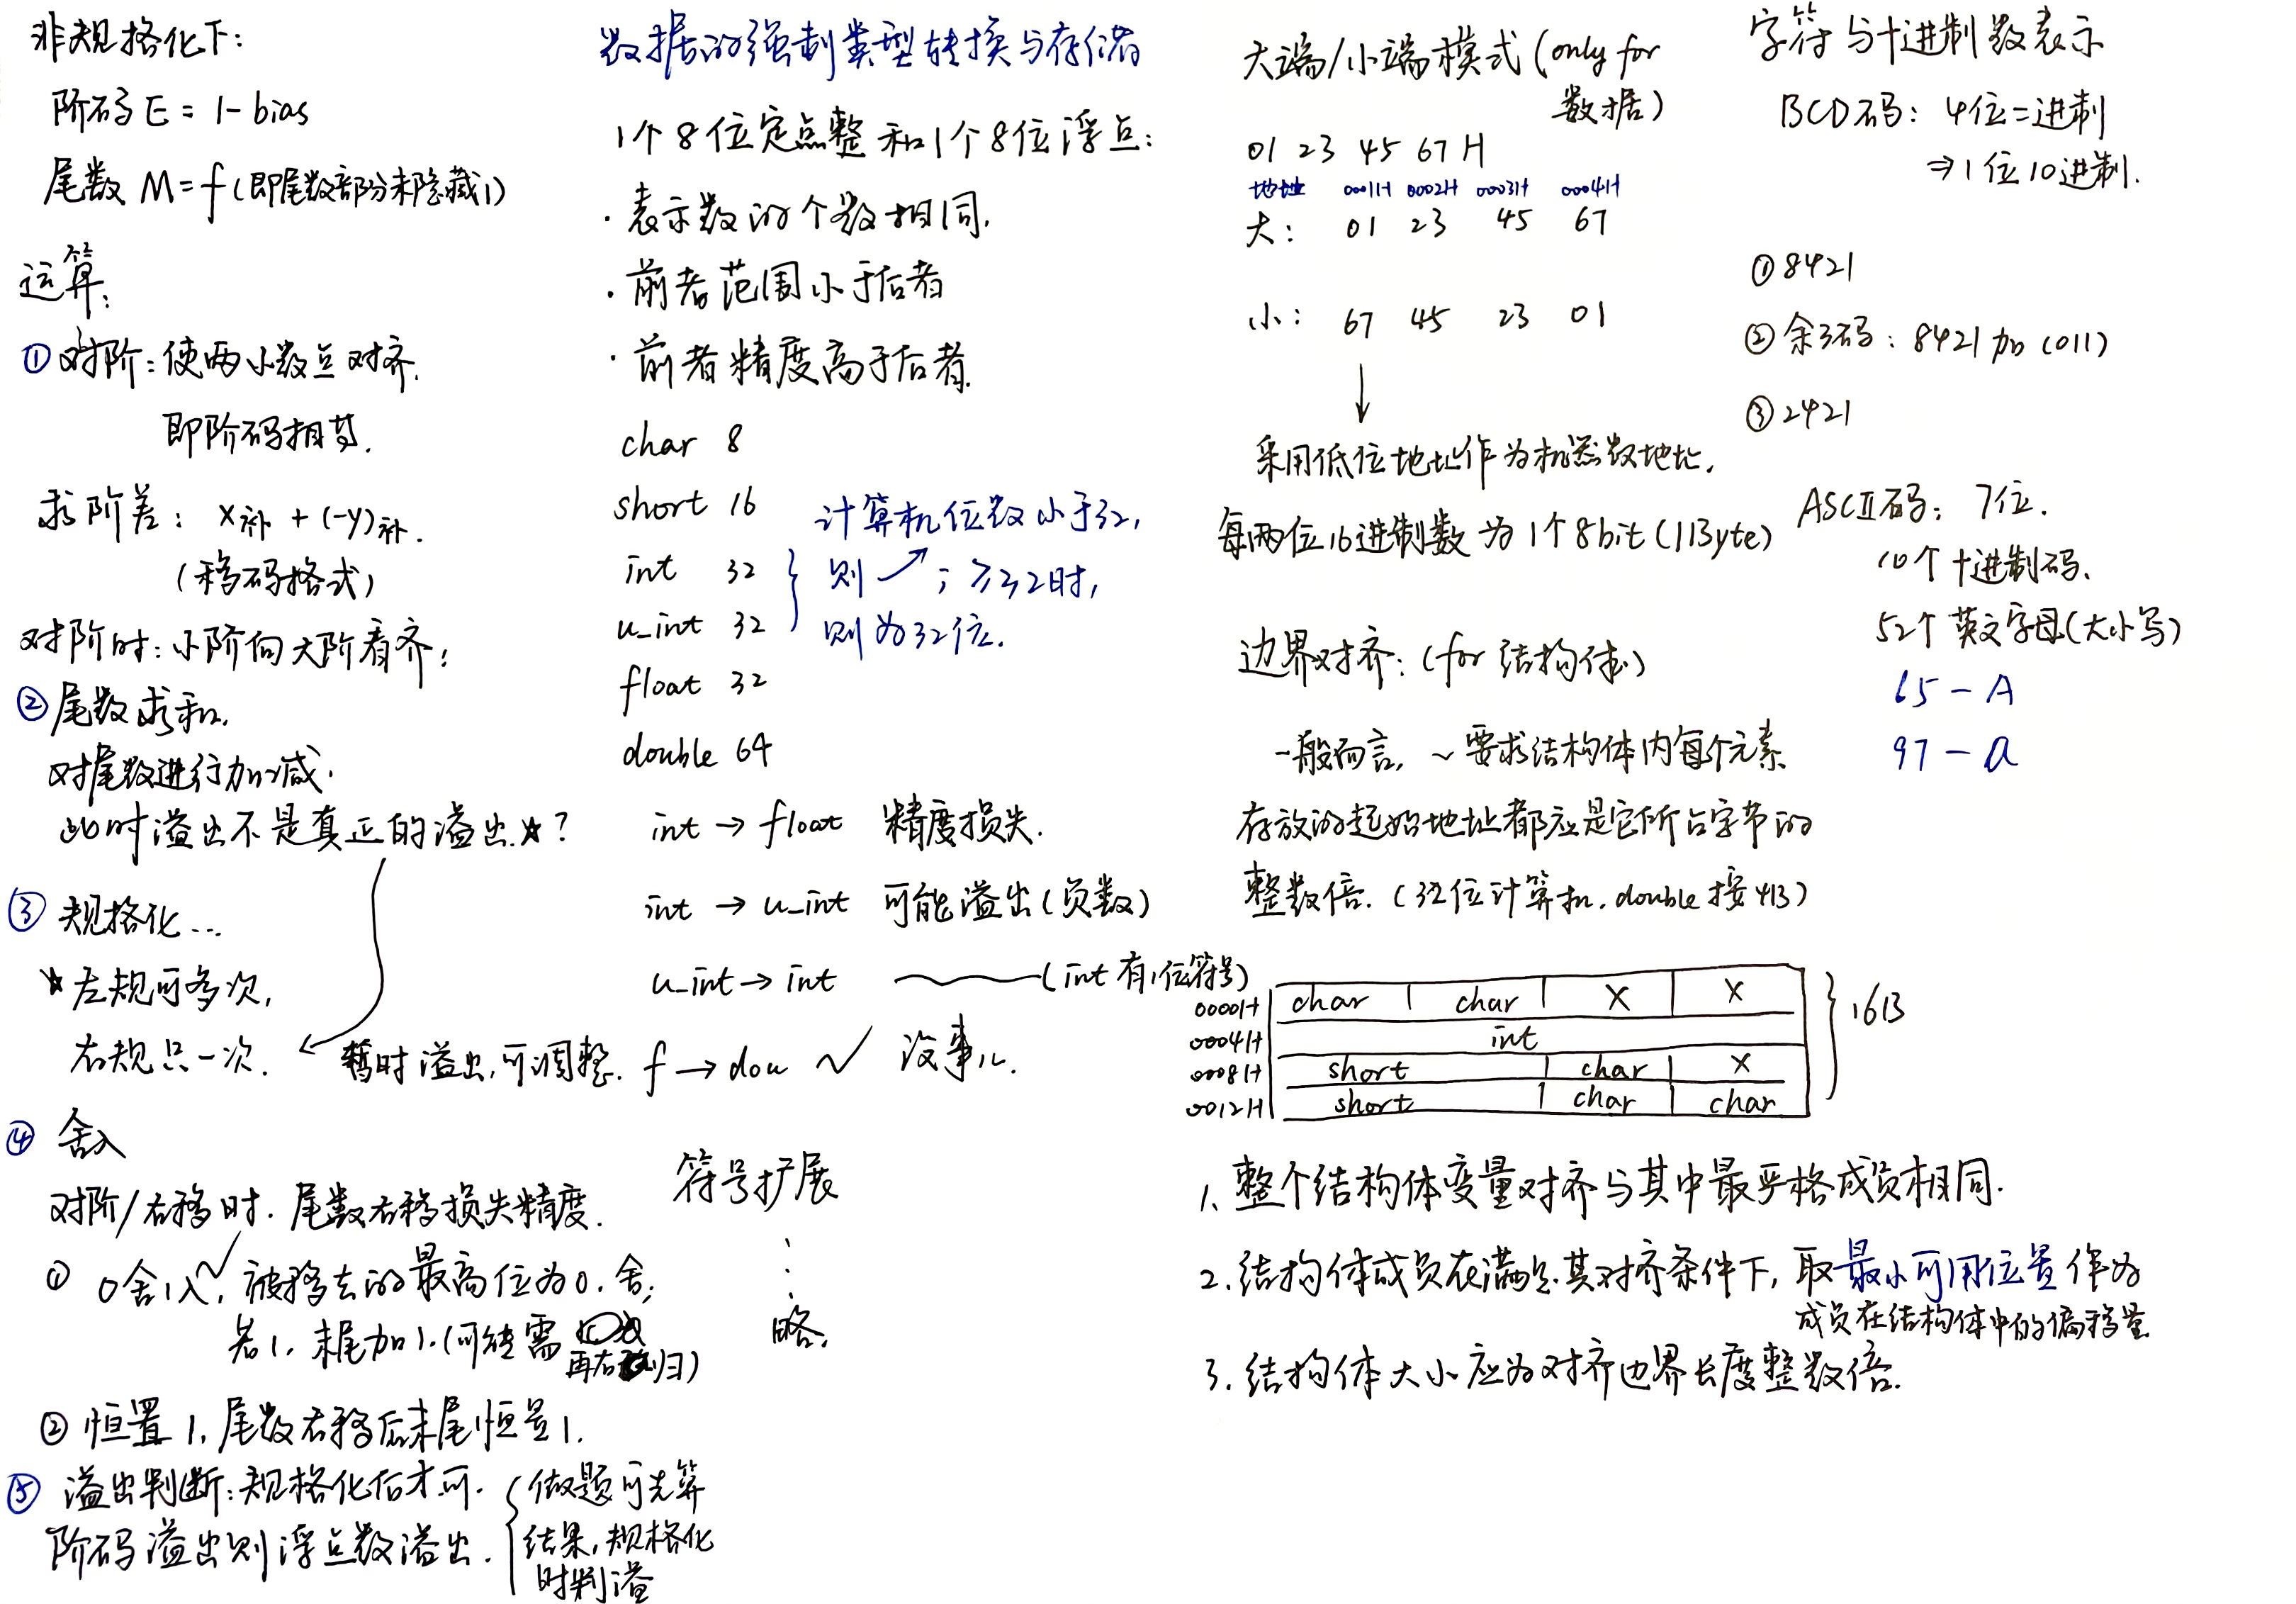 非规格化下：
阶码E = 1-bias
尾数 M=f(即尾数部分未隐藏1)
运算：
① 对阶：使两小数点对齐.
即阶码相等.
求阶差： x补 + (-y)补.
(移码格式)
对阶时：小阶向大阶看齐；
② 尾数求和.
对尾数进行加减.
此时溢出不是真正的溢出☆?
③ 规格化...
☆左规可多次,
右规只一次.
暂时溢出,可调整.
④ 舍入
对阶/右移时. 尾数右移损失精度.
① 0舍1入✓, 被移去的最高位为0. 舍;
若1. 末尾加1.(可能需
再右归)
② 恒置1. 尾数右移后末尾恒置1.
⑤ 溢出判断：规格化后才可.
阶码溢出则浮点数溢出.
做题可先算
结果,规格化
时判溢
数据的强制类型转换与存储
1个8位定点整和1个8位浮点：
· 表示数的个数相同.
· 前者范围小于后者
· 前者精度高于后者.
char 8
short 16
int 32
u_int 32
计算机位数小于32,
则↗; ≥32时,
则为32位.
float 32
double 64
int → float 精度损失.
int → u_int 可能溢出(负数)
u_int → int ～(int有1位符号)
f → dou ✓ 没事儿.
符号扩展
⋮
略.
大端/小端模式(only for
数据)
01 23 45 67 H
地址 0001H 0002H 0003H 0004H
大： 01 23 45 67
小： 67 45 23 01
↓
采用低位地址作为机器数地址.
每两位16进制数为1个8bit(1Byte)
边界对齐：(for 结构体)
一般而言, ~要求结构体内每个元素
存放的起始地址都应是它所占字节的
整数倍. (32位计算机. double按4B)
0000H char char X X
0004H int
0008H short char X
0012H short char char
16B
1. 整个结构体变量对齐与其中最严格成员相同.
2. 结构体成员在满足其对齐条件下, 取最小可用位置作为
成员在结构体中的偏移量
3. 结构体大小应为对齐边界长度整数倍.
字符与十进制数表示
BCD码： 4位二进制
⇒1位10进制.
① 8421
② 余3码：8421加(011)
③ 2421
ASCII码： 7位.
10个十进制码.
52个英文字母(大小写)
65 - A
97 - a